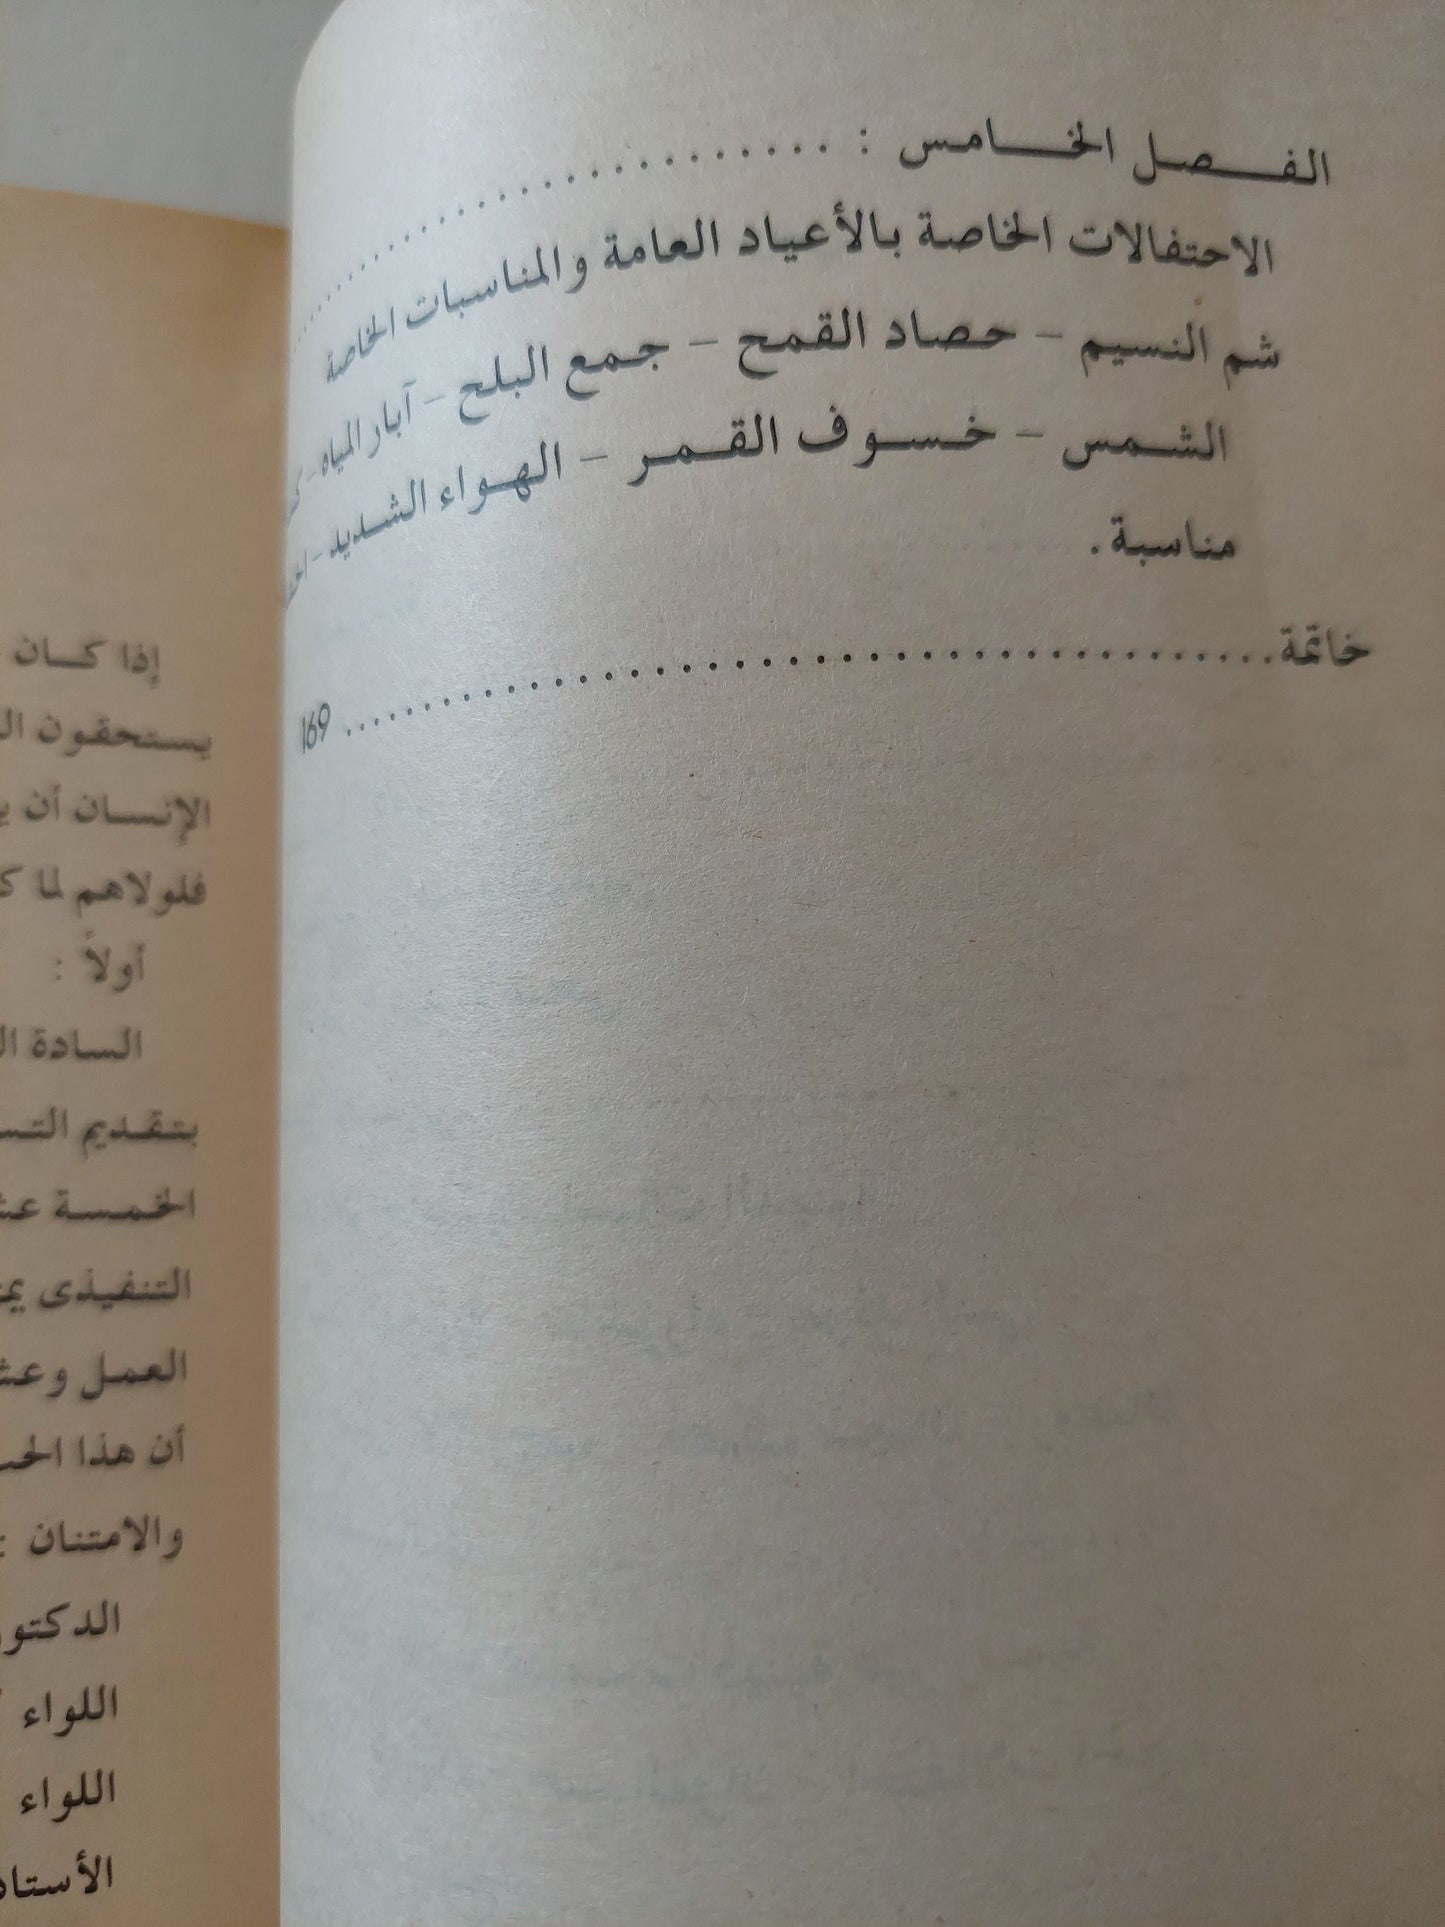 الفصل الخامس : ........................
الاحتفالات الخاصة بالأعياد العامة والمناسبات الخاصة
شم النسيم - حصاد القمح - جمع البلح - آبار المياه -
الشمس - خسوف القمر - الهواء الشديد -
مناسبة .
خاتمة ........................................ 169
إذا كان
يستحقون
الإنسان أن
فلولاهم لما
أولاً :
السادة
بتقديم
الخمسة
التنفيذى
العمل
أن هذا
والامتنان :
اللواء
اللواء